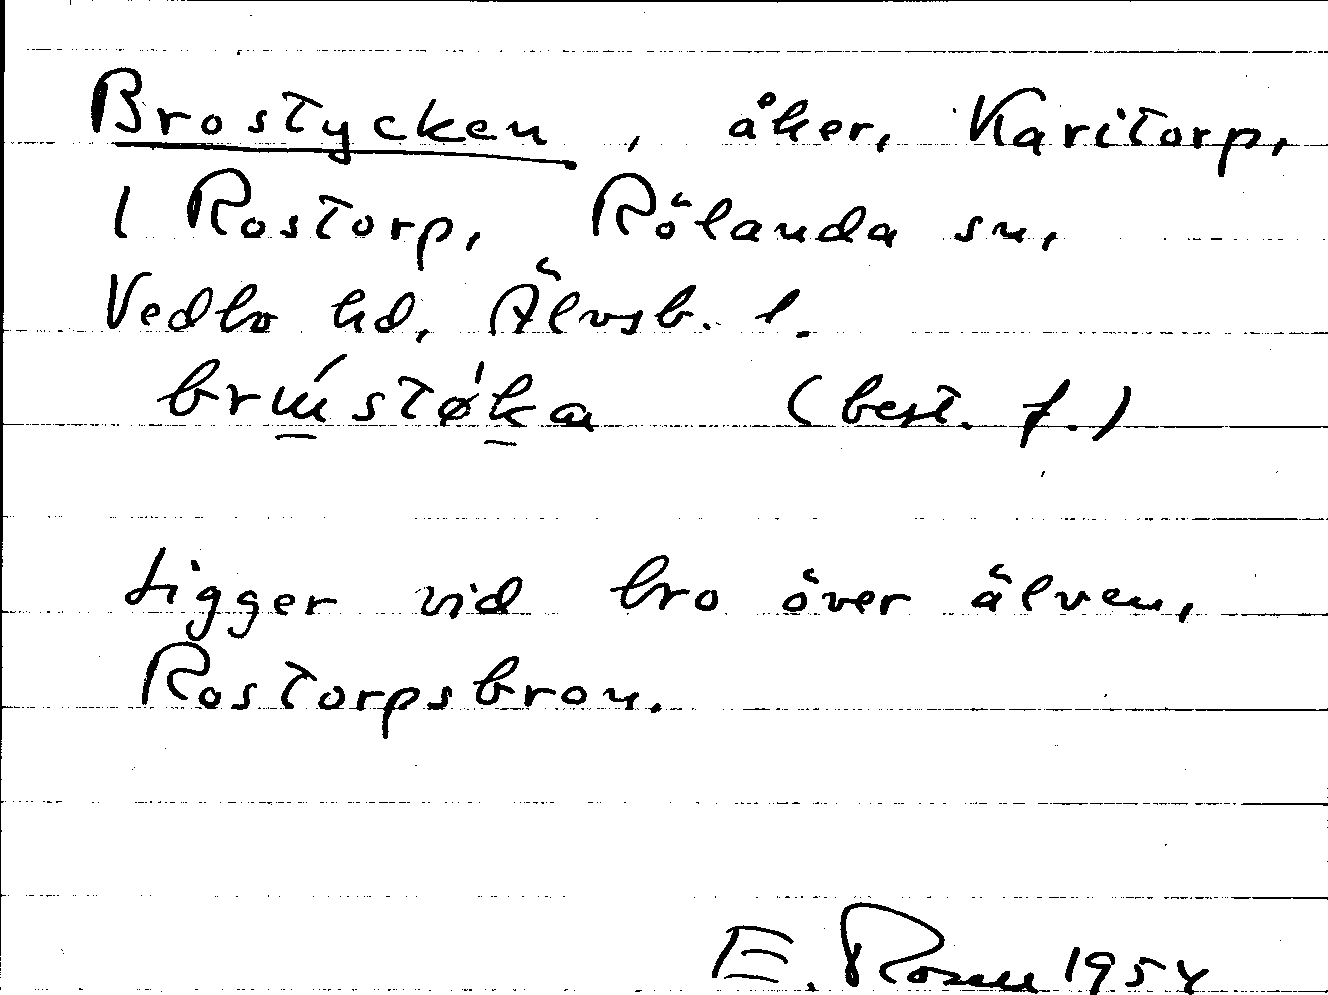 Brostycken, åker, Karitorp,
1 Rostorp, Rölanda sn,
Vedbo hd, Älvsb. l.
(best. f.)
Ligger vid bro över älven,
Rostorpsbron.
E. Rosen 1954